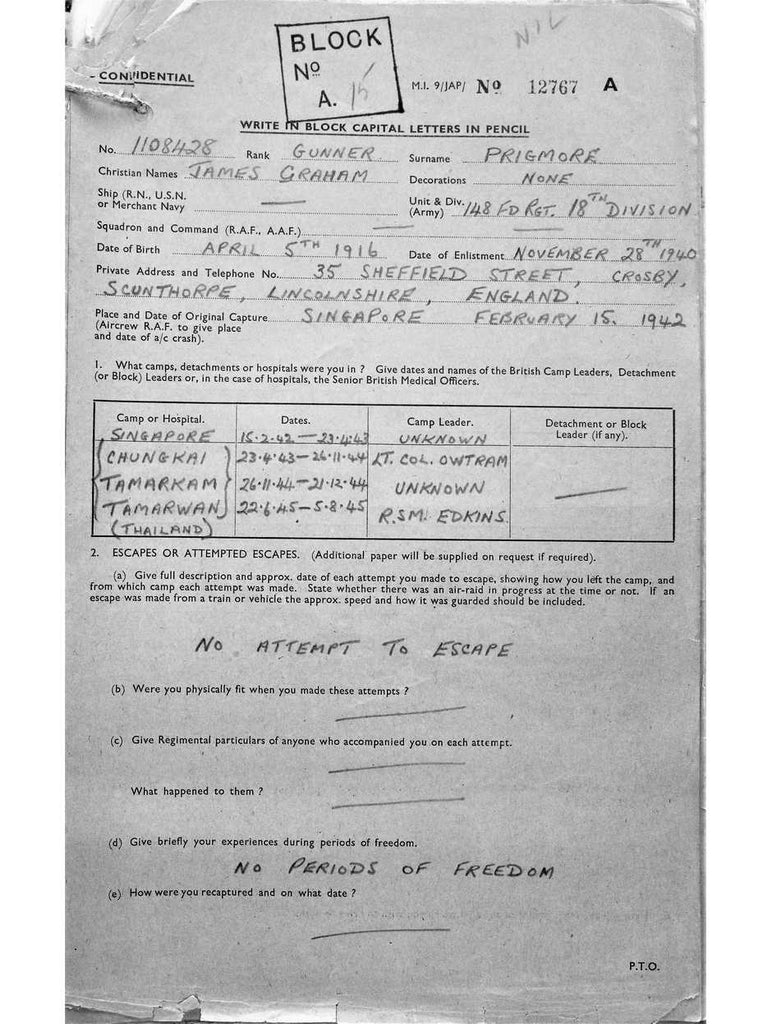 NIL
BLOCK
Nº
A. 15
- CONFIDENTIAL
M.I. 9/JAP/ Nº 12767 A
WRITE IN BLOCK CAPITAL LETTERS IN PENCIL
No. 1108428 Rank GUNNER Surname PRIGMORE
Christian Names JAMES GRAHAM Decorations NONE
Ship (R.N., U.S.N.
or Merchant Navy —
Unit & Div.
(Army) 148 FD RGT. 18TH DIVISION
Squadron and Command (R.A.F., A.A.F.) — —
Date of Birth APRIL 5TH 1916 Date of Enlistment NOVEMBER 28TH 1940
Private Address and Telephone No. 35 SHEFFIELD STREET, CROSBY,
SCUNTHORPE, LINCOLNSHIRE, ENGLAND.
Place and Date of Original Capture SINGAPORE FEBRUARY 15. 1942
(Aircrew R.A.F. to give place
and date of a/c crash).
1. What camps, detachments or hospitals were you in ? Give dates and names of the British Camp Leaders, Detachment
(or Block) Leaders or, in the case of hospitals, the Senior British Medical Officers.
Camp or Hospital. Dates. Camp Leader. Detachment or Block
Leader (if any).
SINGAPORE 15.2.42 — 23.4.43 UNKNOWN
CHUNGKAI 23.4.43 — 26.11.44 LT. COL. OWTRAM
TAMARKAM 26.11.44 — 21.12.44 UNKNOWN —
TAMARWAN 22.6.45 — 5.8.45 R.S.M. EDKINS.
(THAILAND)
2. ESCAPES OR ATTEMPTED ESCAPES. (Additional paper will be supplied on request if required).
(a) Give full description and approx. date of each attempt you made to escape, showing how you left the camp, and
from which camp each attempt was made. State whether there was an air-raid in progress at the time or not. If an
escape was made from a train or vehicle the approx. speed and how it was guarded should be included.
NO ATTEMPT TO ESCAPE
(b) Were you physically fit when you made these attempts ?
—
(c) Give Regimental particulars of anyone who accompanied you on each attempt.
—
What happened to them ?
—
(d) Give briefly your experiences during periods of freedom.
NO PERIODS OF FREEDOM
(e) How were you recaptured and on what date ?
—
P.T.O.